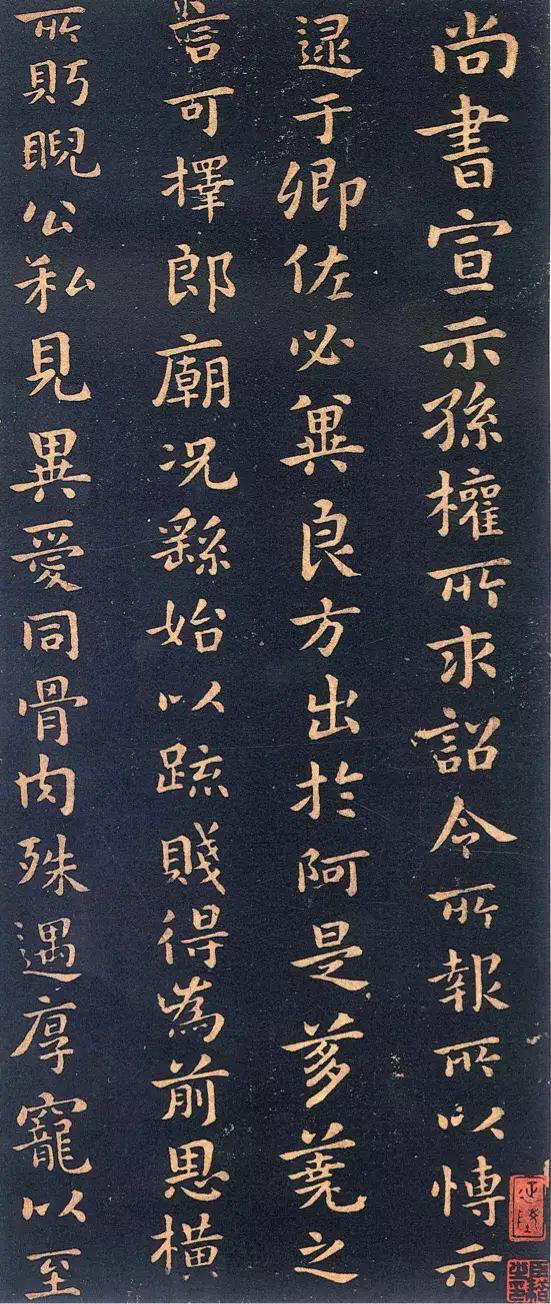 尚書宣示孫權所求詔令所報所以慱示
逯于卿佐必兾良方出於阿是芻蕘之
言可擇郎廟況繇始以疏賤得為前恩橫
所眄睨公私見異愛同骨肉殊遇厚寵以至